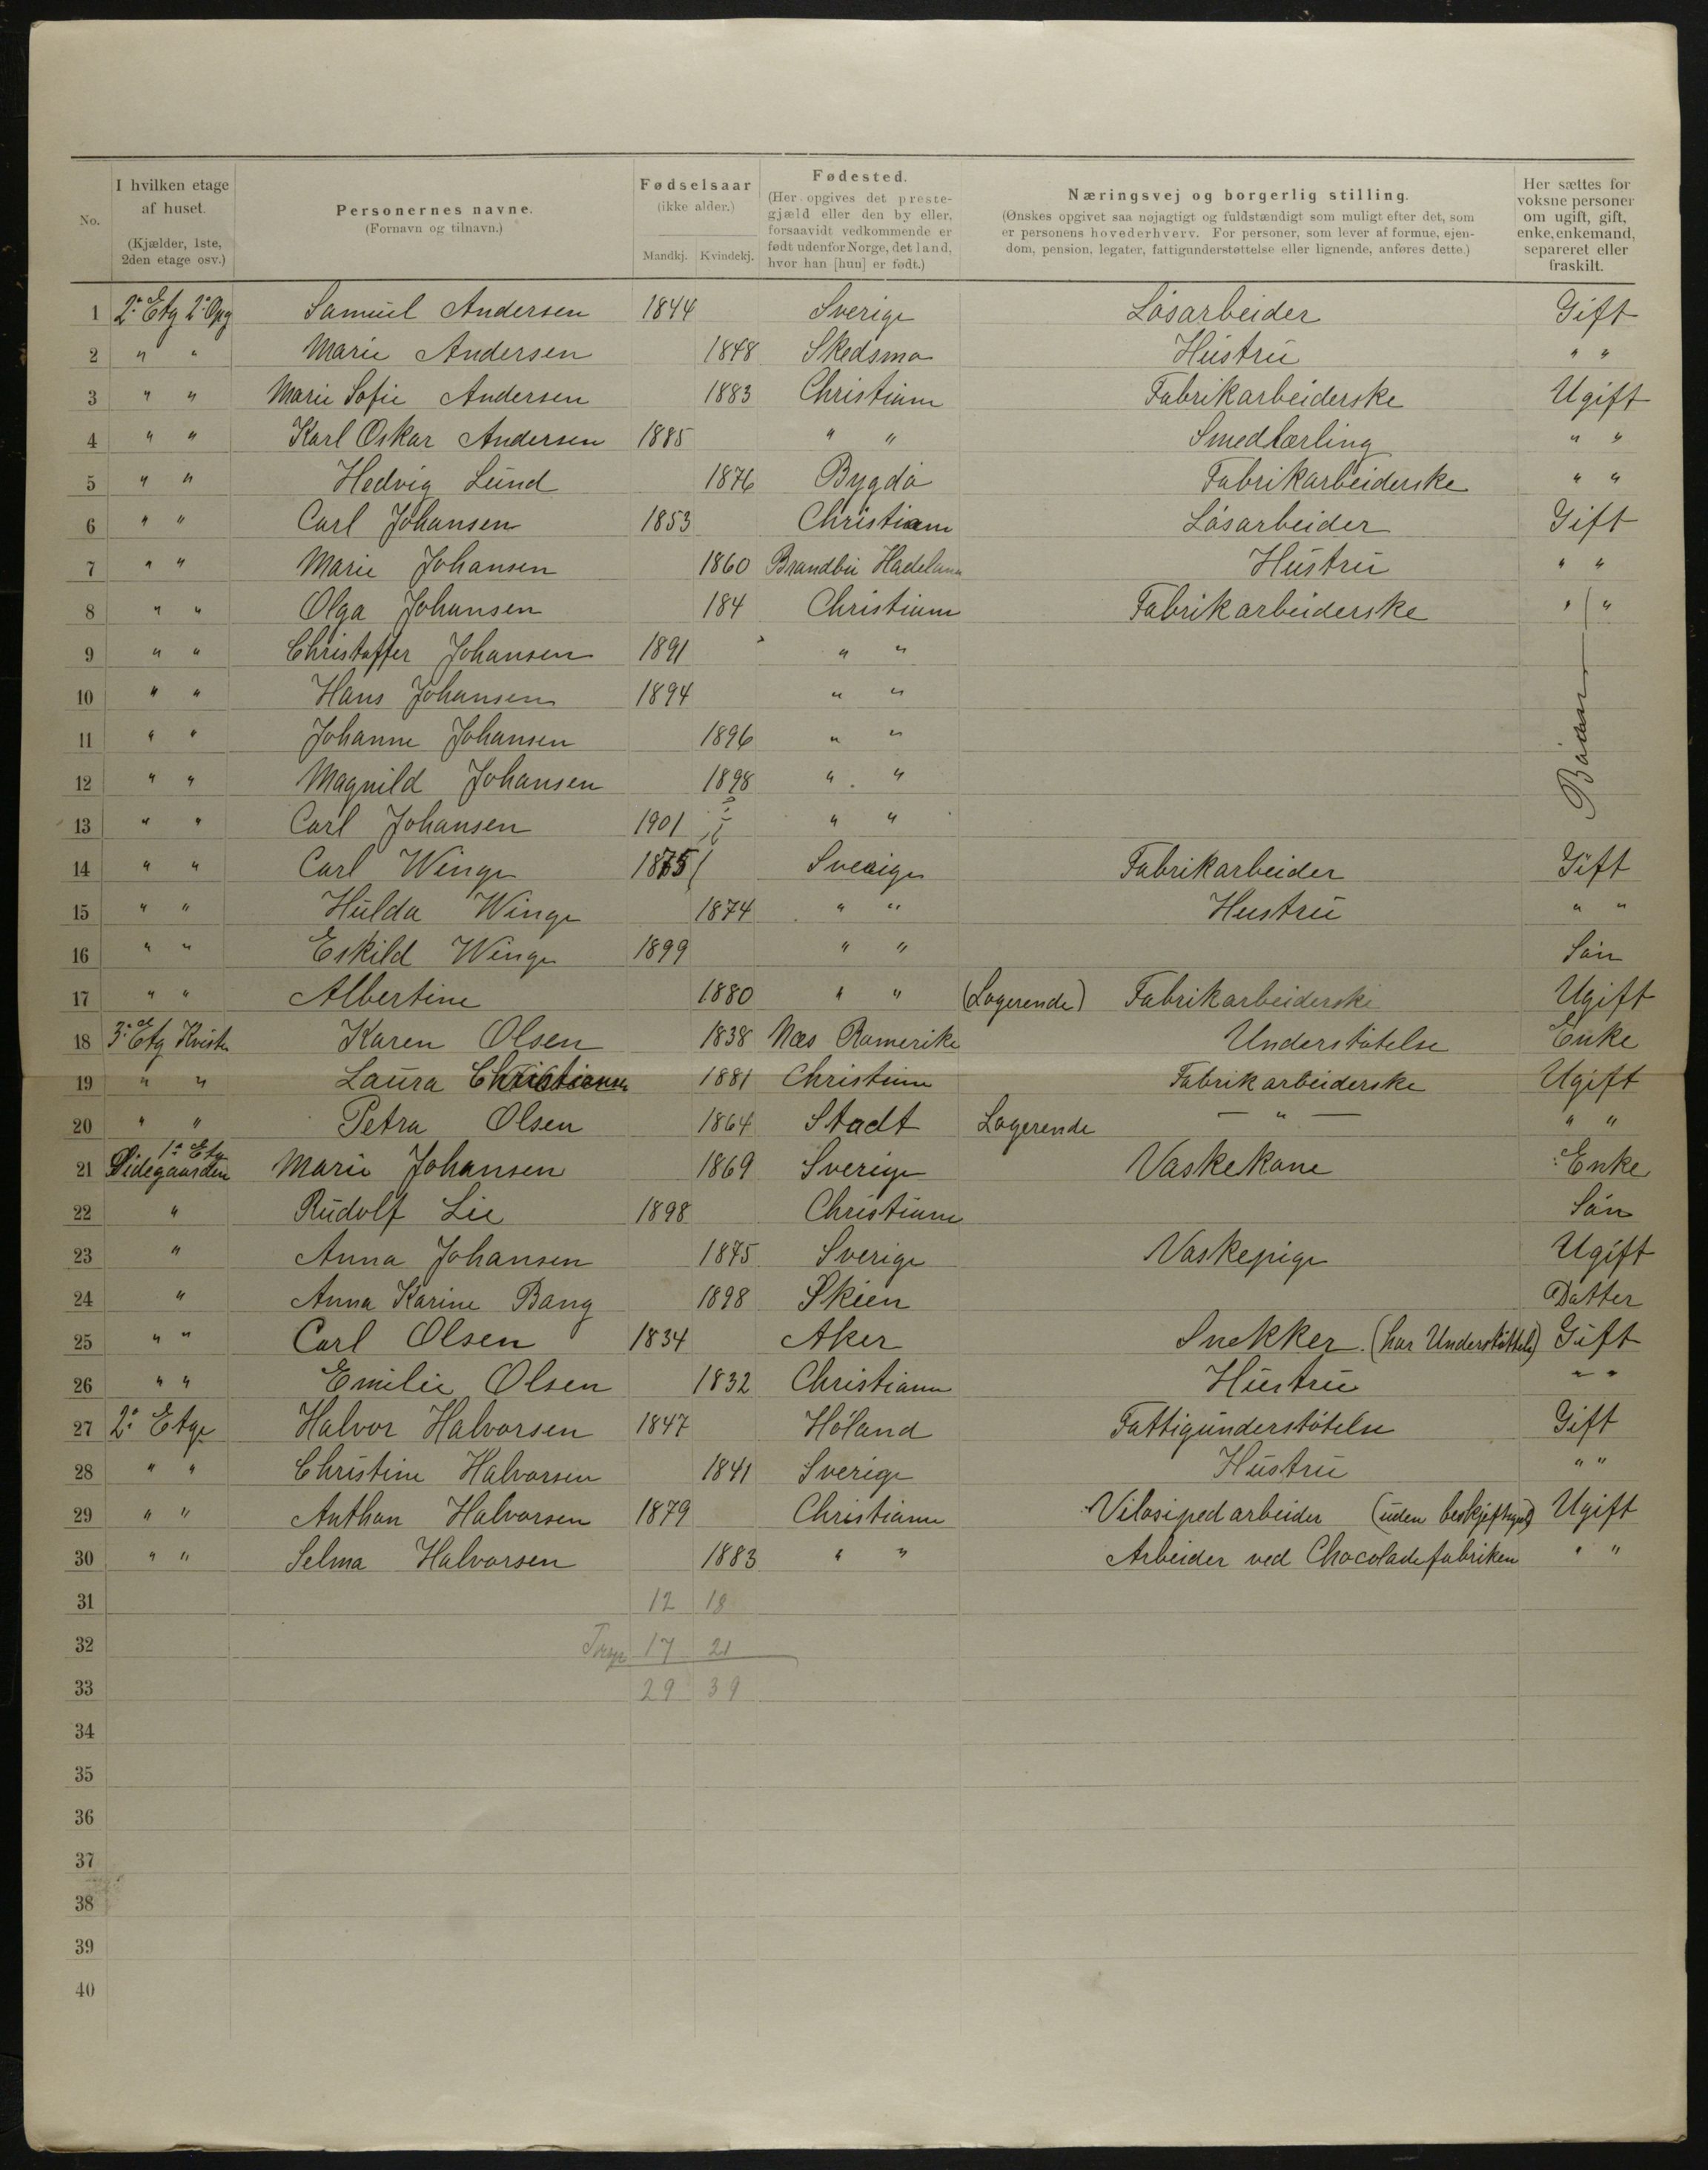 No.
I hvilken etage af huset. (Kjælder, 1ste, 2den etage osv.)
Personernes navne. (Fornavn og tilnavn.)
Fødselsaar (ikke alder.) Mandkj. Kvindekj.
Fødested. (Her opgives det prestegjæld eller den by eller, forsaavidt vedkommende er født udenfor Norge, det land, hvor han [hun] er født.)
Næringsvej og borgerlig stilling. (Ønskes opgivet saa nøjagtigt og fuldstændigt som muligt efter det, som er personens hovederhverv. For personer, som lever af formue, ejendom, pension, legater, fattigunderstøttelse eller lignende, anføres dette.)
Her sættes for voksne personer om ugift, gift, enke, enkemand, separeret eller fraskilt.
1 2. Etg 2. Opg Samuel Andersen 1844 Sverige Løsarbeider Gift
2 " " Marie Andersen 1848 Skedsmo Hustru " "
3 " " Marie Sofie Andersen 1883 Christiania Fabrikarbeiderske Ugift
4 " " Karl Oskar Andersen 1885 " " Smedlærling " "
5 " " Hedvig Lund 1876 Bygdø Fabrikarbeiderske " "
6 " " Carl Johansen 1853 Christiania Løsarbeider Gift
7 " " Marie Johansen 1860 Brandbu Hadeland Hustru " "
8 " " Olga Johansen 184 Christiania Fabrikarbeiderske " "
9 " " Christoffer Johansen 1891 " "
10 " " Hans Johansen 1894 " "
11 " " Johanne Johansen 1896 " " Børn
12 " " Magnild Johansen 1898 " "
13 " " Carl Johansen 1901 " "
14 " " Carl Winge 1875 Sverige Fabrikarbeider Gift
15 " " Hulda Winge 1874 " " Hustru " "
16 " " Eskild Winge 1899 " " Søn
17 " " Albertine 1880 " " (Logerende) Fabrikarbeiderske Ugift
18 3. Etg Kvisten Karen Olsen 1838 Næs Romerike Understøtelse Enke
19 " " Laura Christiansen 1881 Christiania Fabrikarbeiderske Ugift
20 " " Petra Olsen 1864 Stadt Logerende — " — " "
21 1. Etg Sidegaarden Marie Johansen 1869 Sverige Vaskekone Enke
22 " Rudolf Lie 1898 Christiania Søn
23 " Anna Johansen 1875 Sverige Vaskepige Ugift
24 " Anna Karine Bang 1898 Skien Datter
25 " " Carl Olsen 1834 Aker Snekker. (har Understøttelse) Gift
26 " " Emilie Olsen 1832 Christiania Hustru " "
27 2. Etge Halvor Halvorsen 1847 Høland Fattigunderstøtelse Gift
28 " " Christine Halvorsen 1841 Sverige Hustru " "
29 " " Anthon Halvorsen 1879 Christiania Vilosipedarbeider (uden beskjeftigels) Ugift
30 " " Selma Halvorsen 1883 " " Arbeider ved Chocoladefabriken " "
31 12 18
32 17 21
33 29 39
34
35
36
37
38
39
40